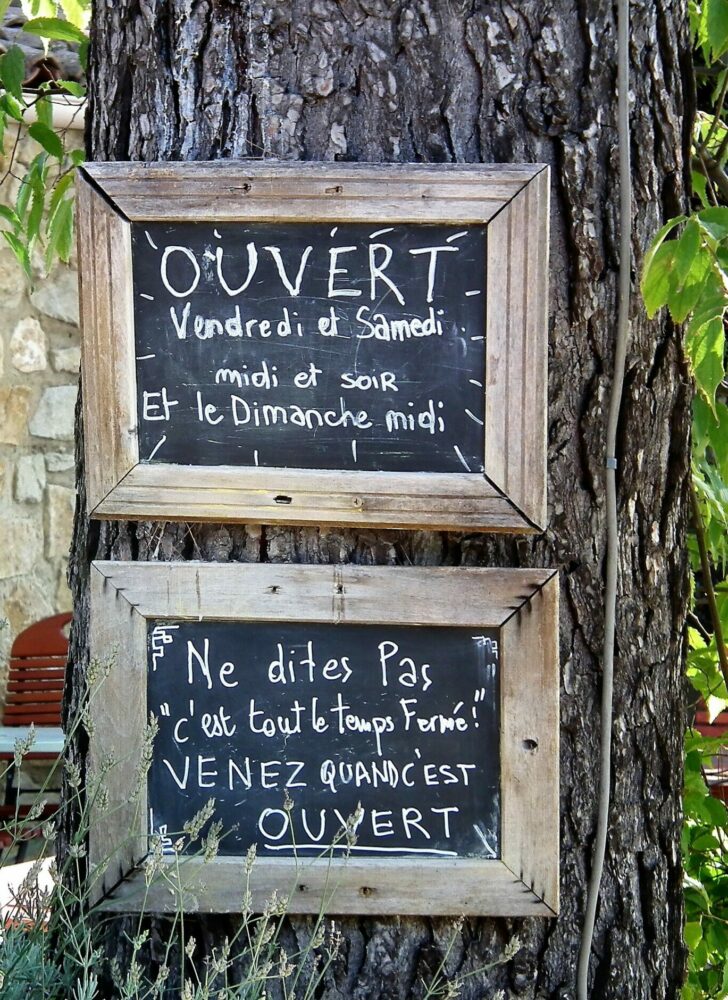 OUVERT
Vendredi et Samedi
midi et SOIR
Et le Dimanche midi
Ne dites Pas
"c'est tout le temps Fermé!"
VENEZ QUAND C'EST
OUVERT